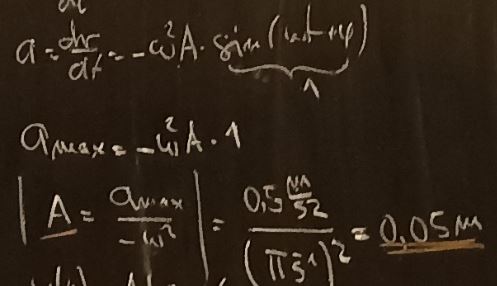 a = dv/dt = -ω²A · sin(ωt+φ)
1
a max = -ω²A · 1
| A = a max / -ω² | = 0,5 m/s² / (π s⁻¹)² = 0,05 m